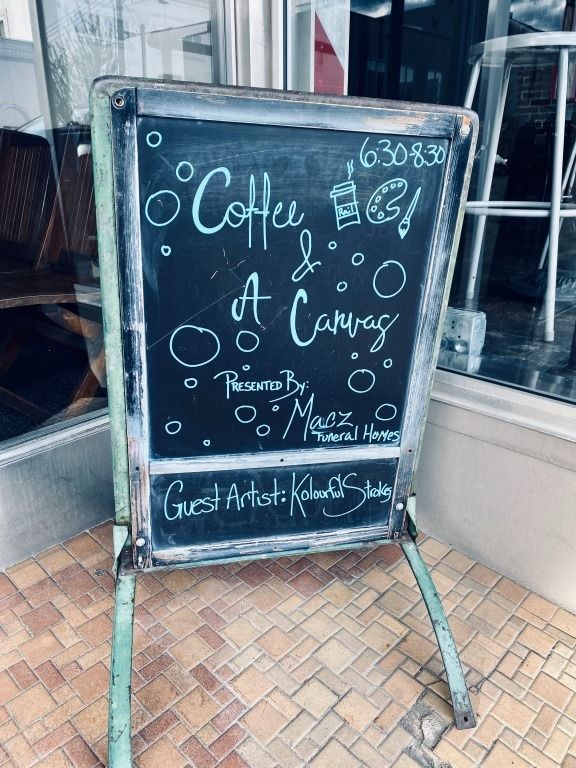 6:30-8:30
Coffee
Rail
&
A Canvas
PRESENTED BY:
Macz
Funeral Homes
Guest Artist: Kolourful Strokes